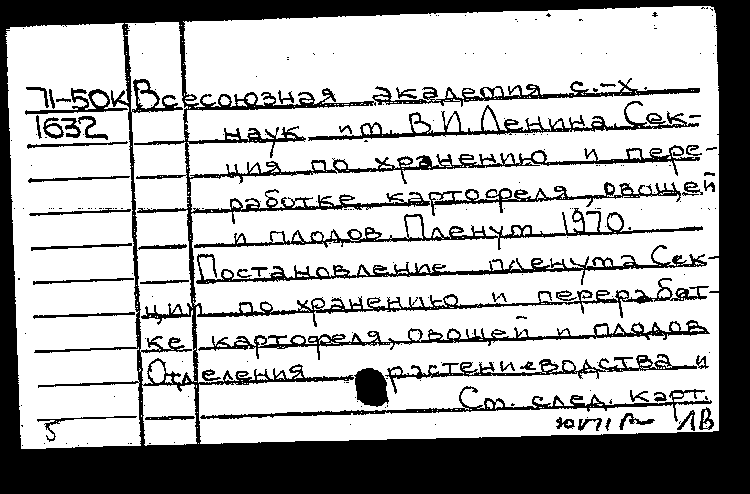 71-50К Всесоюзная академия с.-х.
1632 наук им. В.И. Ленина. Сек-
ция по хранению и пере-
работке картофеля, овощей
и плодов. Пленум. 1970.
Постановление пленума Сек-
ции по хранению и перерабат-
ке картофеля, овощей и плодов
Отделения растениеводства и
См. след. карт.
5 ЛВ